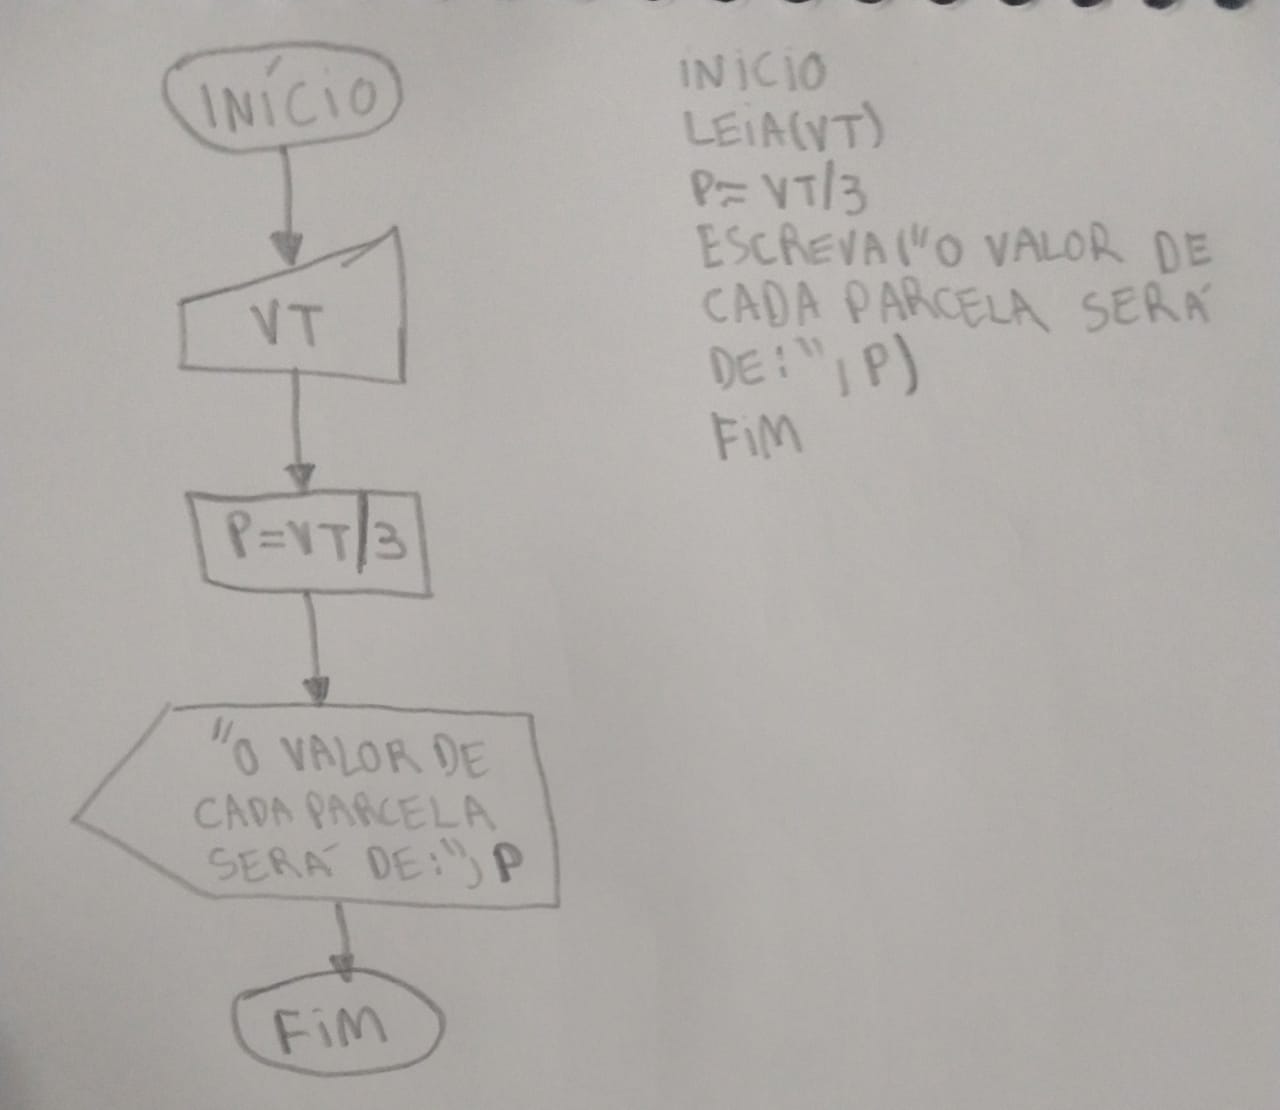 INÍCIO
VT
P=VT/3
"O VALOR DE
CADA PARCELA
SERÁ DE:", P
FIM
INICIO
LEIA(VT)
P= VT/3
ESCREVA("O VALOR DE
CADA PARCELA SERÁ
DE:", P)
FIM